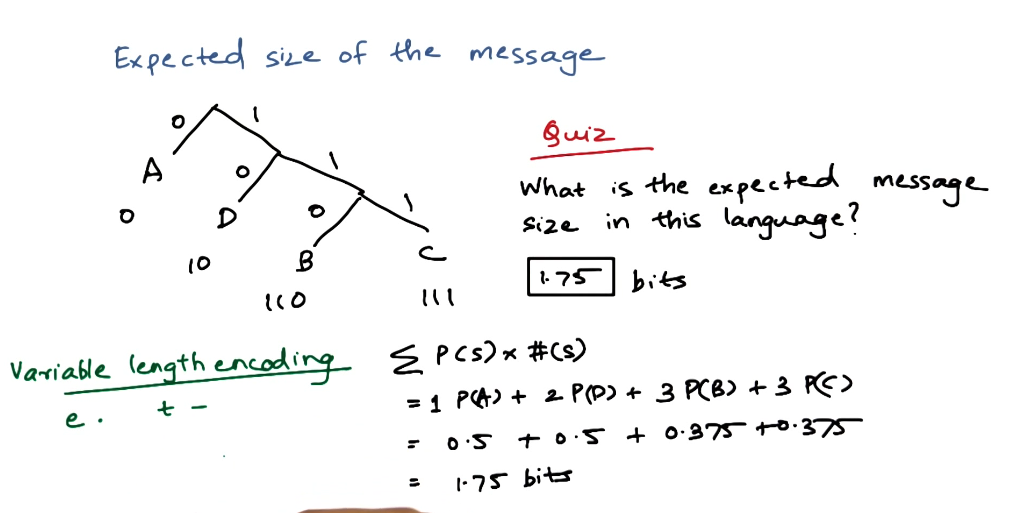 Expected size of the message
0 1
A 0 1
0 D 0 1
10 B C
110 111
Quiz
What is the expected message
size in this language?
1.75 bits
Variable length encoding
e . t -
Σ P(S) × #(S)
= 1 P(A) + 2 P(D) + 3 P(B) + 3 P(C)
= 0.5 + 0.5 + 0.375 + 0.375
= 1.75 bits